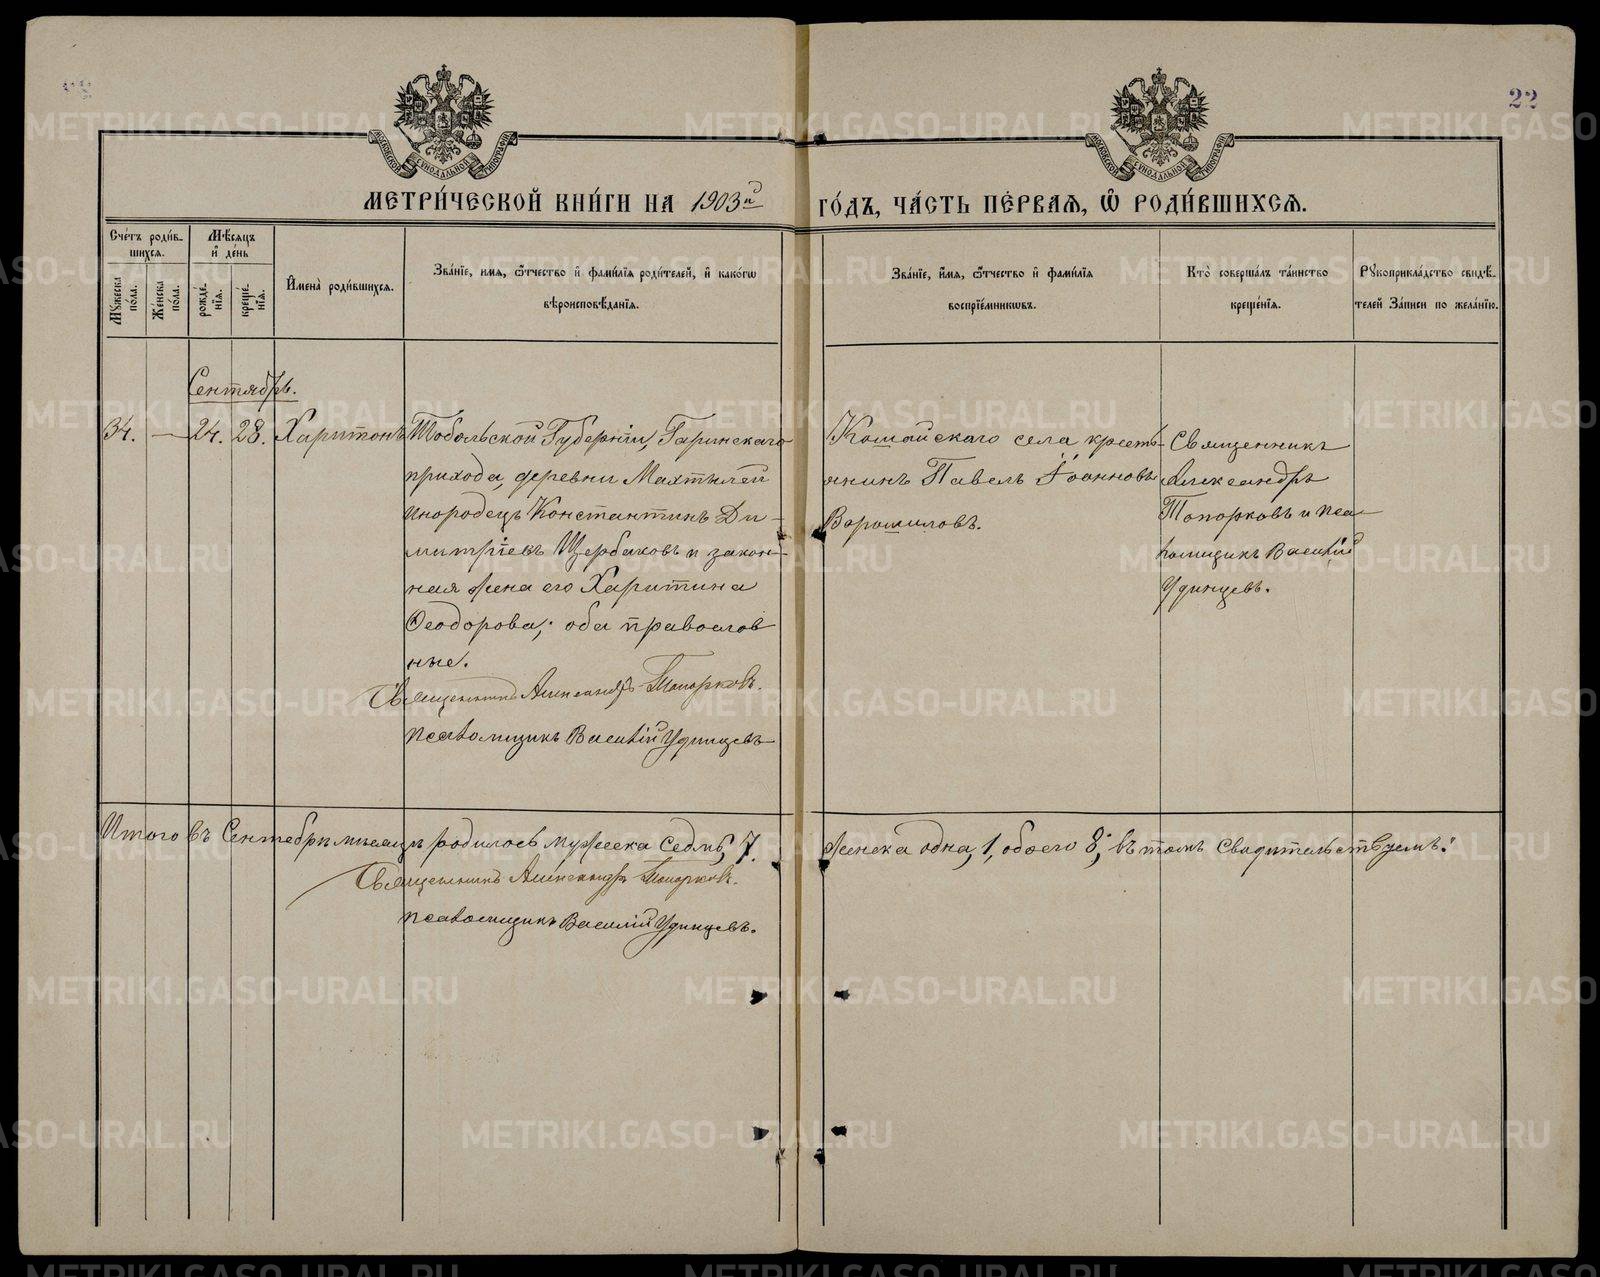 22
МОСКОВСКОЙ СѴНОДАЛЬНОЙ ТИПОГРАФІИ
МОСКОВСКОЙ СѴНОДАЛЬНОЙ ТИПОГРАФІИ
МЕТРИ́ЧЕСКОЙ КНИ́ГИ НА 1903й ГО́ДЪ, ЧА́СТЬ ПЕ́РВАЯ, Ѡ҆ РОДИ́ВШИХСЯ.
Сче́тъ роди́в-
шихся.
Му́жеска
по́ла.
Же́нска
по́ла.
Мѣ́сяцъ
и҆ де́нь
рожде́-
нія.
креще́-
нія.
И҆мена̀ роди́вшихся.
Зва́ніе, имя, ѻ҆́тчество и҆ фами́лія роди́телей, и҆ како́гѡ
вѣроисповѣ́данія.
Зва́ніе, и҆́мя, ѻ҆́тчество и҆ фами́лія
воспріе́мникѡвъ.
Кто̀ соверша́лъ та́инство
креще́нія.
Рꙋкоприкла́дство свидѣ́-
телей За́писи по жела́нію.
Сентябрь.
34. — 24. 28. Харитонъ
Тобольской Губерніи, Гаринскаго
прихода, деревни Махтылей
инородецъ Константинъ Ди-
митріевъ Щербаковъ и закон-
ная жена его Харитина
Ѳеодорова; оба православ
ные.
Священникъ Александръ Топорковъ.
Псаломщикъ Василій Удинцевъ
Кошайскаго села кресть-
янинъ Павелъ Іоанновъ
Ворошиловъ.
Священникъ
Александръ
Топорковъ и пса-
ломщикъ Василій
Удинцевъ.
Итого въ Сентябрѣ мѣсяцѣ родилось мужеска седмь, 7. женска одна, 1, обоего 8; въ томъ свидительствуемъ:
Священникъ Александръ Топорковъ.
Псаломщикъ Василій Удинцевъ.
METRIKI.GASO-URAL.RU